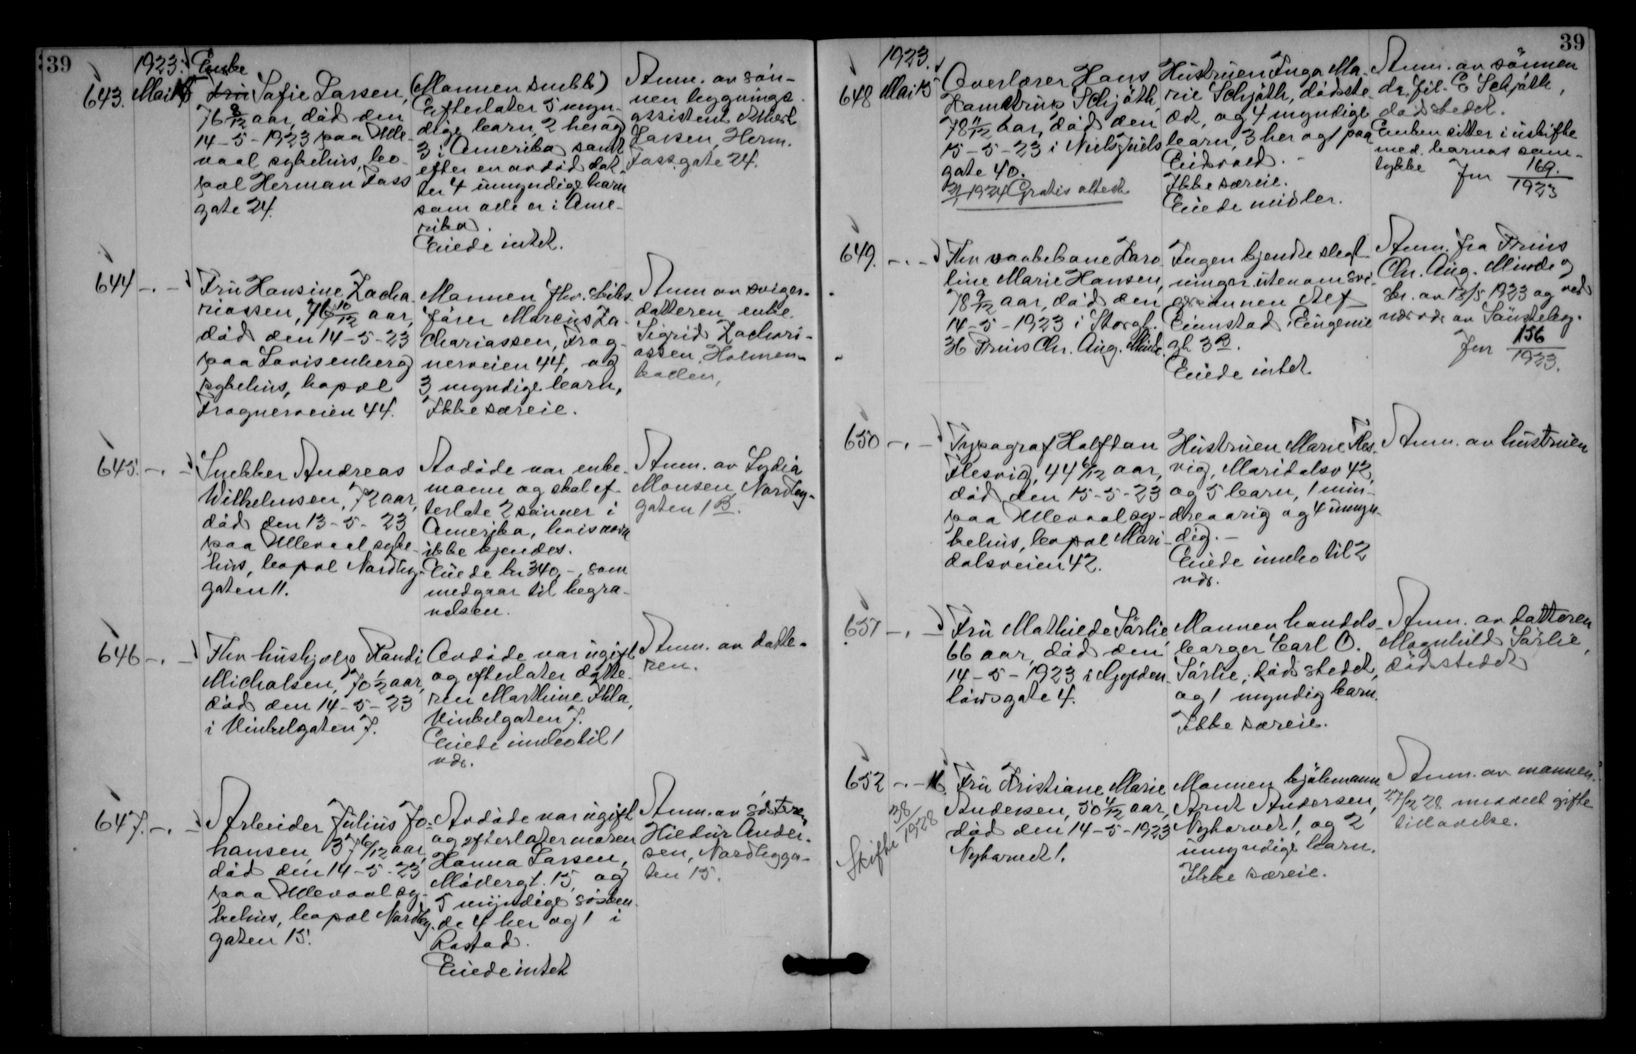 39
1923.
643. Mai 15
Enke
Fru Sofie Larsen,
76 8/12 aar, död den
14-5-1923 paa Ulle-
vaal sykehus, bo-
pæl Herman Foss
gate 24.
(Mannen snekk)
Efterlater 5 myn-
dige barn, 2 her og
3 i Amerika samt
efter en avdöd dat-
ter 4 umyndige barn
som alle er i Ame-
rika.
Eiede intet.
Anm. av søn-
nen bygnings-
assistent
Larsen, Herm.
Fossgate 24.
644 -.-
Fru Hansine Zacha-
riassen, 76 10/12 aar,
död den 14-5-23
paa Lovisenberg
sykehus, bopæl
Frognerveien 44.
Mannen fhv. skibs-
förer Marcus Za-
chariassen, Frog-
nerveien 44, og
3 myndige barn,
Ikke særeie.
Anm av sviger-
datteren enke
Sigrid Zachari-
assen, Holmen-
kollen,
645. -.-
Snekker Andreas
Wilhelmsen, 72 aar,
död den 13-5-23
paa Ullevaal syke-
hus, bopæl Nordby-
gaten 11.
Avdöde var enke-
mann og skal ef-
terlate 2 sönner i
Amerika, hvis navn
ikke kjendes.
Eiede kr 340,-, som
medgaar til begra-
velsen.
Anm. av Lydia
Monsen, Nordby-
gaten 1 B.
646 -.-
Fhv hushjelp Randi
Michalsen, 70 1/2 aar,
död den 14-5-23
i Vinkelgaten 7.
Avdöde var ugift
og efterlater datte-
ren Marthine
Vinkelgaten 7.
Eiede innbo til 1
vds.
Anm. av datte-
ren.
647. -.-
Arbeider Julius Jo-
hansen, 37 6/12 aar,
död den 14-5-23,
paa Ullevaal sy-
kehus, bopæl Nordby-
gaten 15.
Avdöde var ugift
og efterlater moren
Hanna Larsen,
Mödergt. 15, og
5 myndige sösken-
de 4 her og 1 i
Eiede intet
Anm. av söstren,
Hildur Ander-
sen, Nordbyga-
ten 15.
39
1923.
648 Mai 15
Overlærer Hans
Schjöth,
78 11/12 aar, död den
15-5-23 i Niels Juels
gate 40.
1924 Gratis attest
Hustruen Inga Ma-
rie Schjöth, dödste-
det, og 4 myndige
barn, 3 her og 1 paa
Eidsvold. -
Ikke særeie.
Eiede midler.
Anm. av sönnen
dr. fil. E Schjöth,
dödstedet.
Enken sitter i uskifte
med barnas sam-
tykke Jnr 169/1923
649. -.-
Fhv vaskekone Karo-
line Marie Hansen,
78 9/12 aar, död den
14-5-1923 i Storgt.
36 Prins Chr. Aug. Minde.
Ingen kjendte slegt-
ninger utenom svi-
gersönnen Alf
Einnstad, Eugenie
gt 3 B.
Eiede intet.
Anm. fra Prins
Chr. Aug. Minde og
br. av 13/5 1923 og ved
Jnr 156/1923.
650 -.-
Typograf Halfdan
Flesvig, 44 6/12 aar,
död den 15-5-23
paa Ullevaal sy-
kehus, bopæl Mari-
dalsveien 42.
Hustruen Marie Fles-
vig, Maridalsv 42,
og 5 barn, 1 min-
dreaarig og 4 umyn-
dig. -
Eiede innbo til 2
vds.
Anm. av hustruen
651 -.-
Fru Mathilde Sörlie,
66 aar, död den
14-5-1923 i Gylden-
lövsgate 4.
Mannen handels-
borger Carl O.
Sörlie, dödstedet,
og 1 myndig barn.
Ikke særeie.
Anm. av datteren
Magnhild Sörlie,
dödstedet
652 -.- 16
Skifte 38/1928
Fru Kristiane Marie
Andersen, 50 4/12 aar,
död den 14-5-1923
Nyhavnet 1.
Mannen kjölemann
Arnt Andersen,
Nyhavnet 1, og 2
umyndige barn.
Ikke særeie.
Anm. av mannen.
27/2 28 meddelt gifte-
tilladelse.